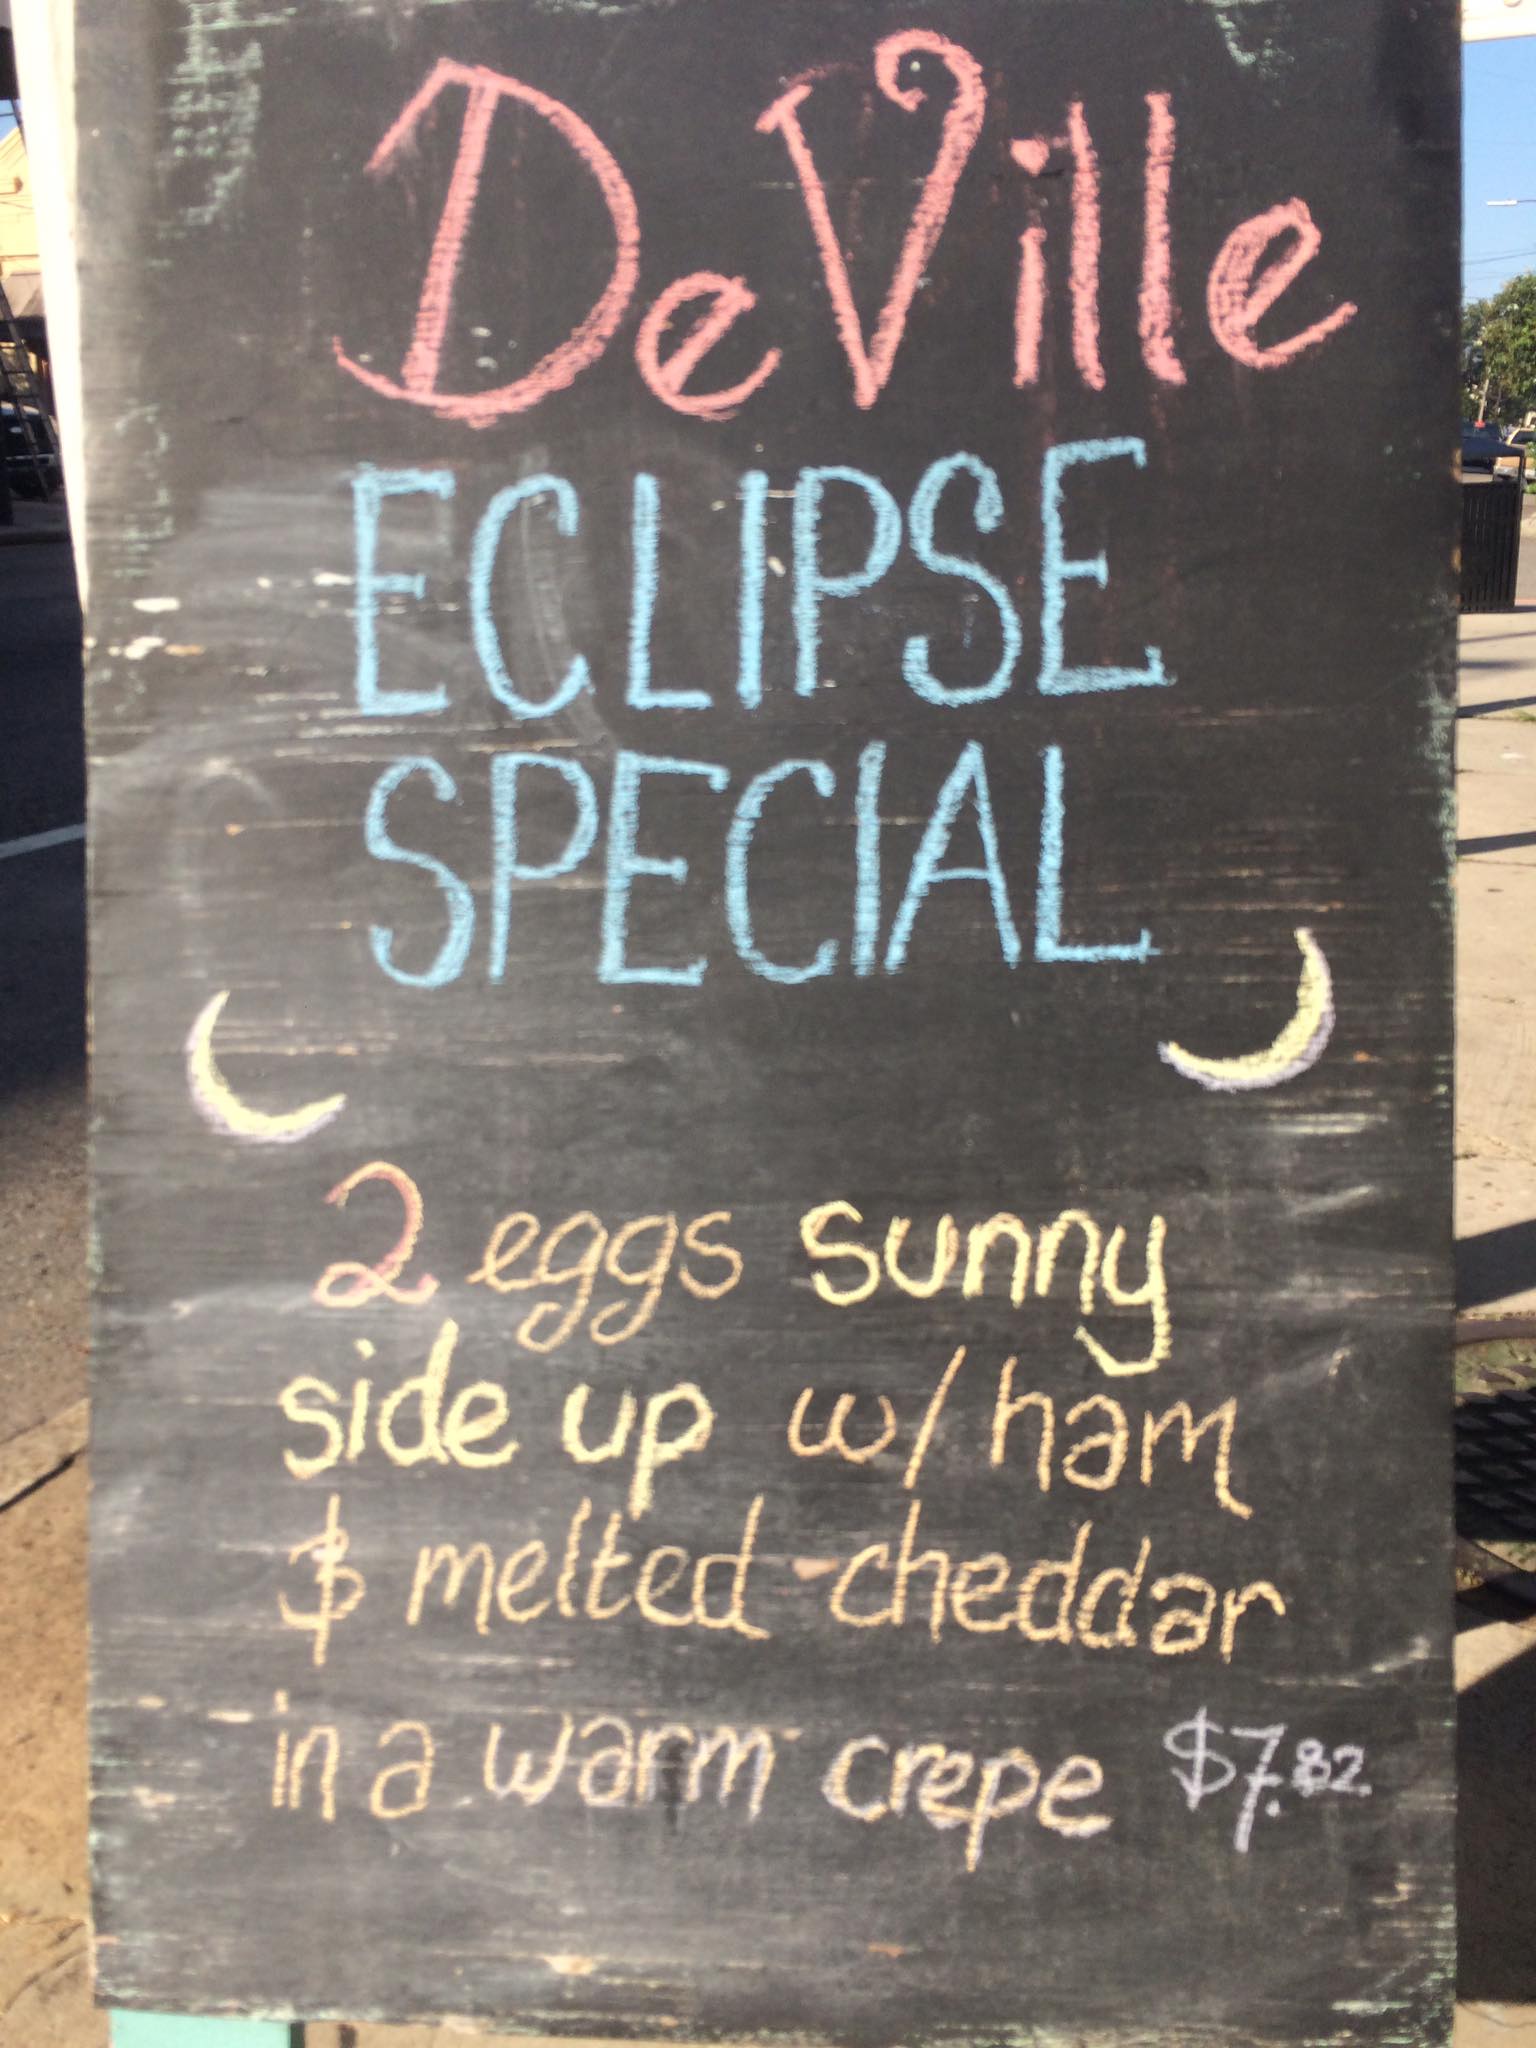 DeVille
ECLIPSE
SPECIAL
2 eggs sunny
side up w/ ham
& melted cheddar
in a warm crepe $7.82